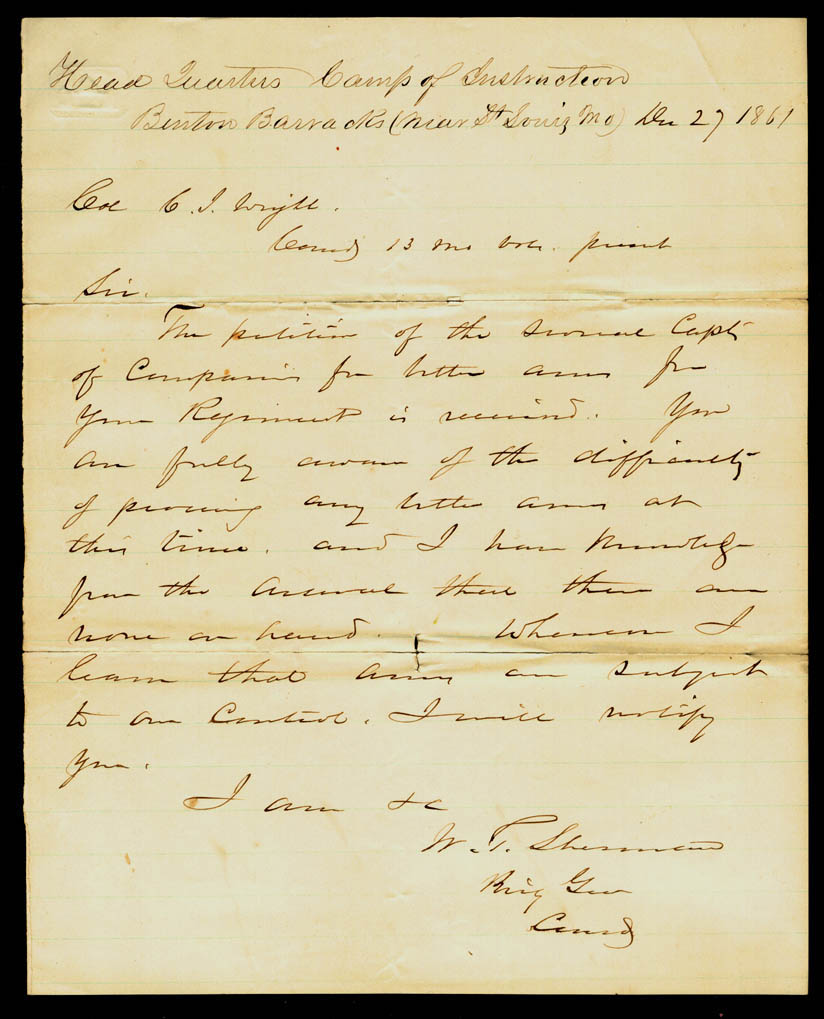 Head Quarters Camp of Instruction
Benton Barracks (near St Louis, Mo) Dec 27 1861
Col C. J. Wright.
Comdg 13 Mo Vols. present
Sir.
The petition of the several Capts
of Companies for better arms for
your Regiment is received. You
are fully aware of the difficulty
of procuring any better arms at
this time. and I have knowledge
from the Arsenal that there are
none on hand. Whenever I
learn that arms are subject
to our Control. I will notify
you.
I am &c
W. T. Sherman
Brig Gen
Comdg